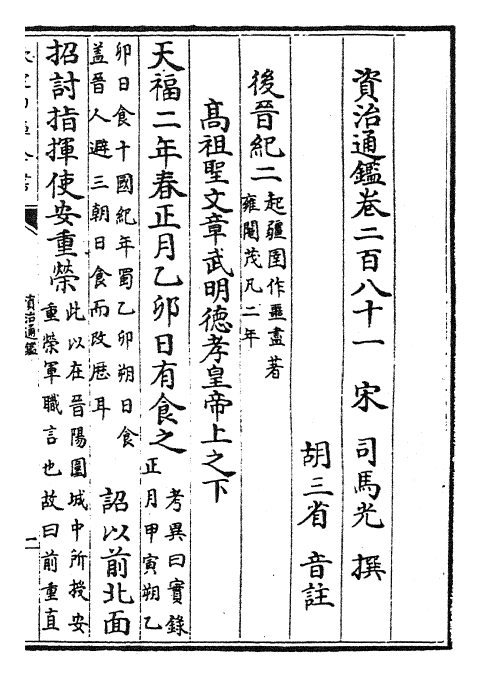 資治通鑑卷二百八十一　宋　司馬光　撰
胡三省　音註
後晉紀二起彊圉作噩盡著
雍閹茂凡二年
高祖聖文章武明德孝皇帝上之下
天福二年春正月乙卯日有食之考異曰實錄
正月甲寅朔乙
卯日食十國紀年蜀乙卯朔日食
蓋晉人避三朝日食而改歷耳詔以前北面
招討指揮使安重榮此以在晉陽圍城中所授安
重榮軍職言也故曰前重直
資治通鑑
二